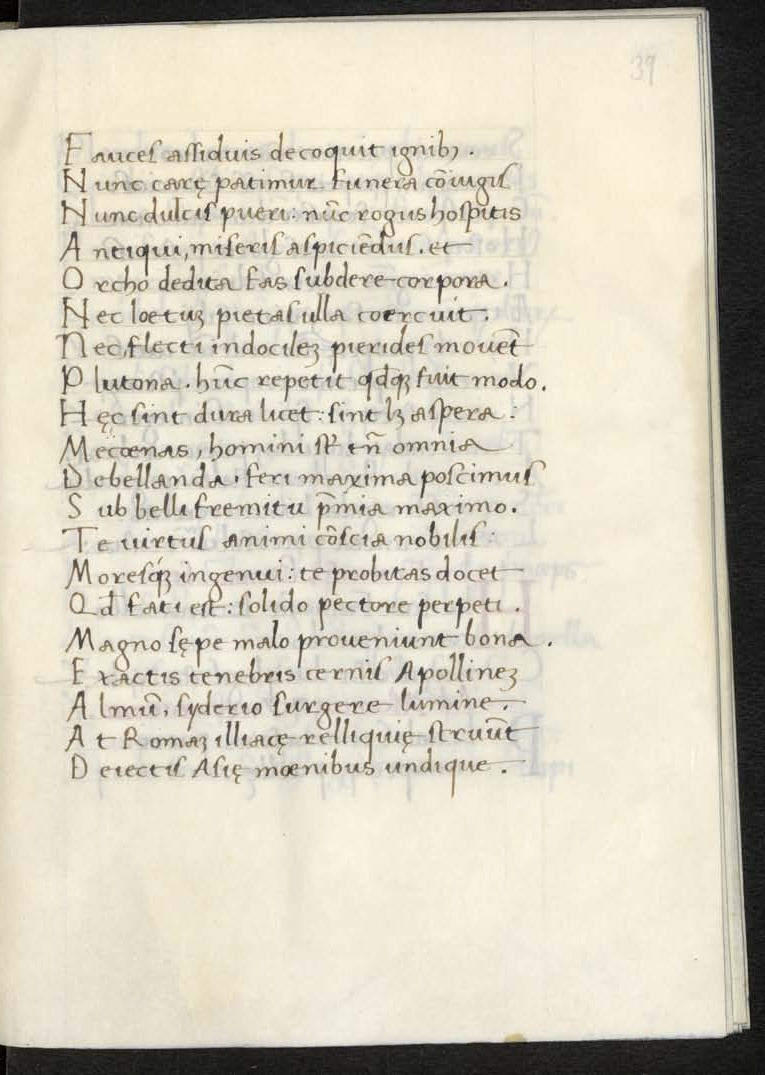 39
Fauces assiduis decoquit ignibꝫ .
Nunc carę patimur funera cōiugis
Nunc dulcis pueri : nūc rogus hospitis
Antiqui, miseris aspiciēdus . et
Orcho dedita fas subdere corpora .
Nec loetuꝫ pietas ulla coercuit .
Nec flecti indocileꝫ pierides mouēt
Plutona . hūc repetit qđqꝫ fuit modo .
Hęc sint dura licet : sint lꝫ aspera :
Mecœnas , homini st̄ tn̄ omnia
Debellanda . feri maxima poscimus
Sub belli fremitu p̄mia maximo .
Te uirtus animi cōscia nobilis :
Moresqꝫ ingenui : te probitas docet
Qđ fati est : solido pectore perpeti .
Magno sępe malo proueniunt bona .
Exactis tenebris cernis Apollineꝫ
Almū, syderio surgere lumine .
At Romaꝫ illiacę relliquię struūt
Deiectis Asię mœnibus undique .